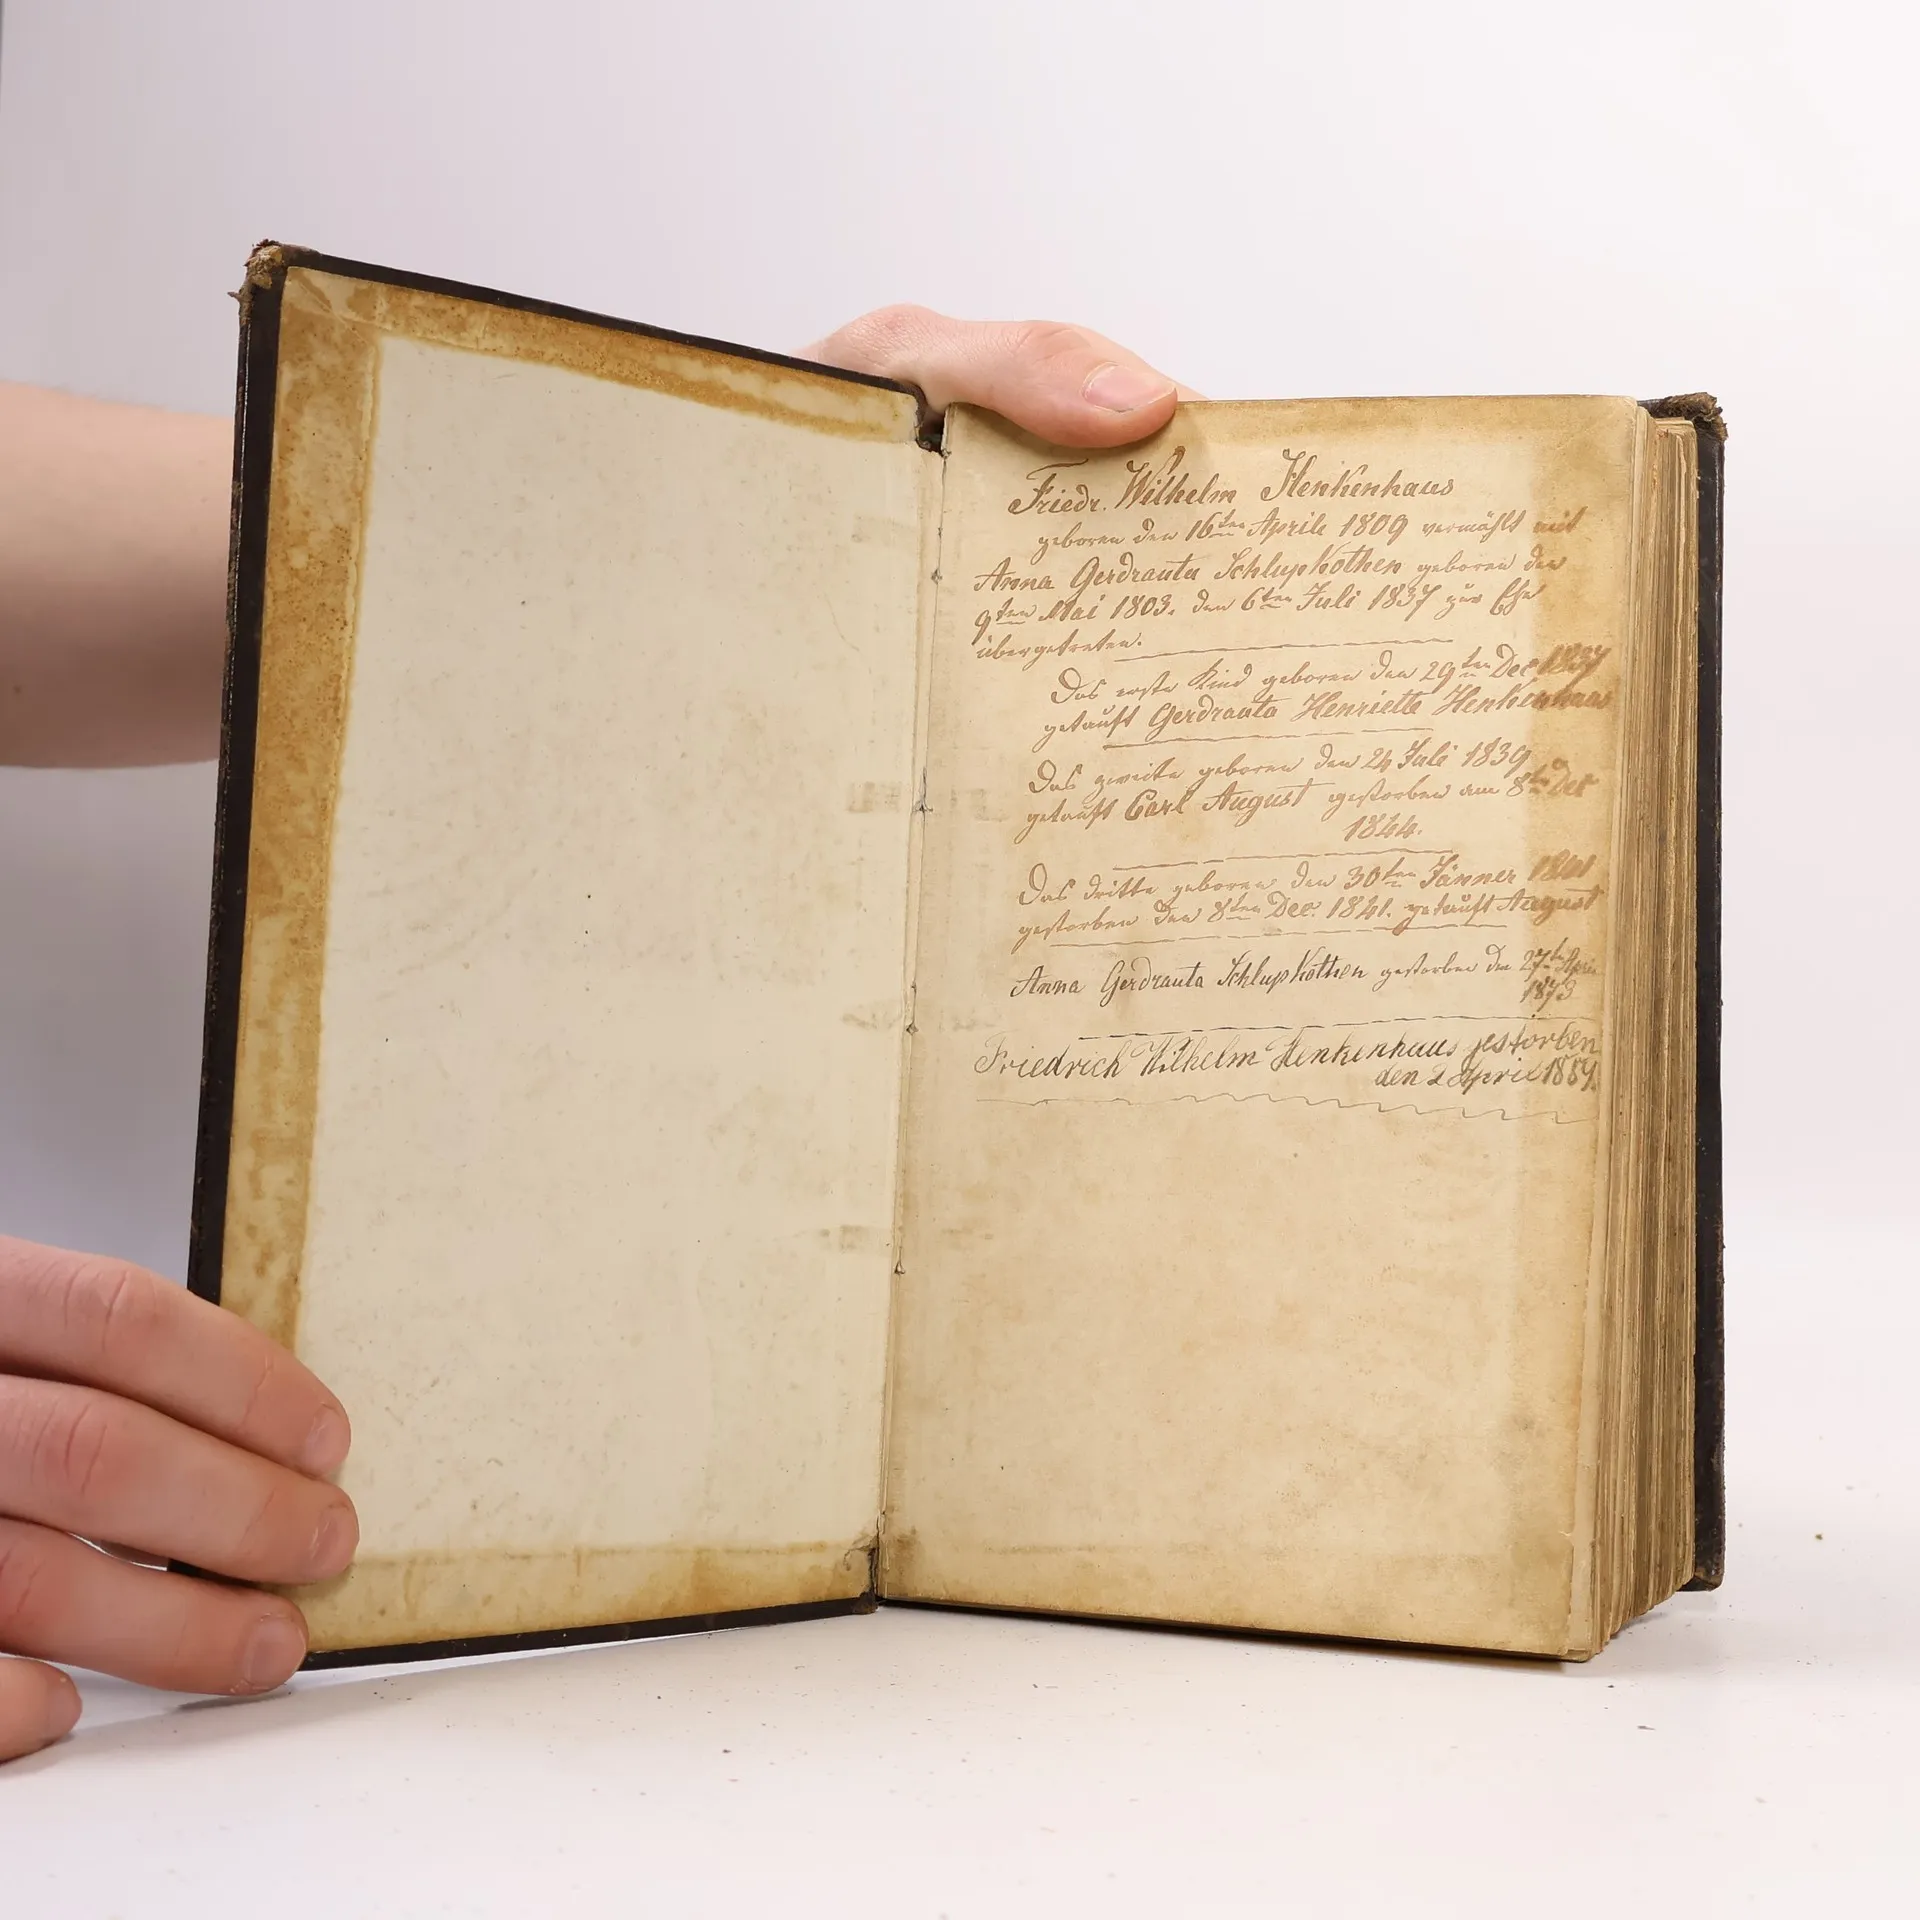 Friedr. Wilhelm Henkenhaus
geboren den 16ten Aprile 1809 vermählt mit
Anna Gerdrauta Schlupkothen geboren den
9ten Mai 1803. den 6ten Juli 1837 zur Ehe
übergetreten.
Das erste Kind geboren den 29ten Dec 1837
getauft Gerdrauta Henrietta Henkenhaus
Das zweite geboren den 24 Juli 1839
getauft Carl August gestorben am 8ten Dec
1844.
Das dritte geboren den 30ten Jänner 1841
gestorben den 8ten Dec. 1841. getauft August
Anna Gerdrauta Schlupkothen gestorben den 27te April
1873
Friedrich Wilhelm Henkenhaus gestorben
den 2 April